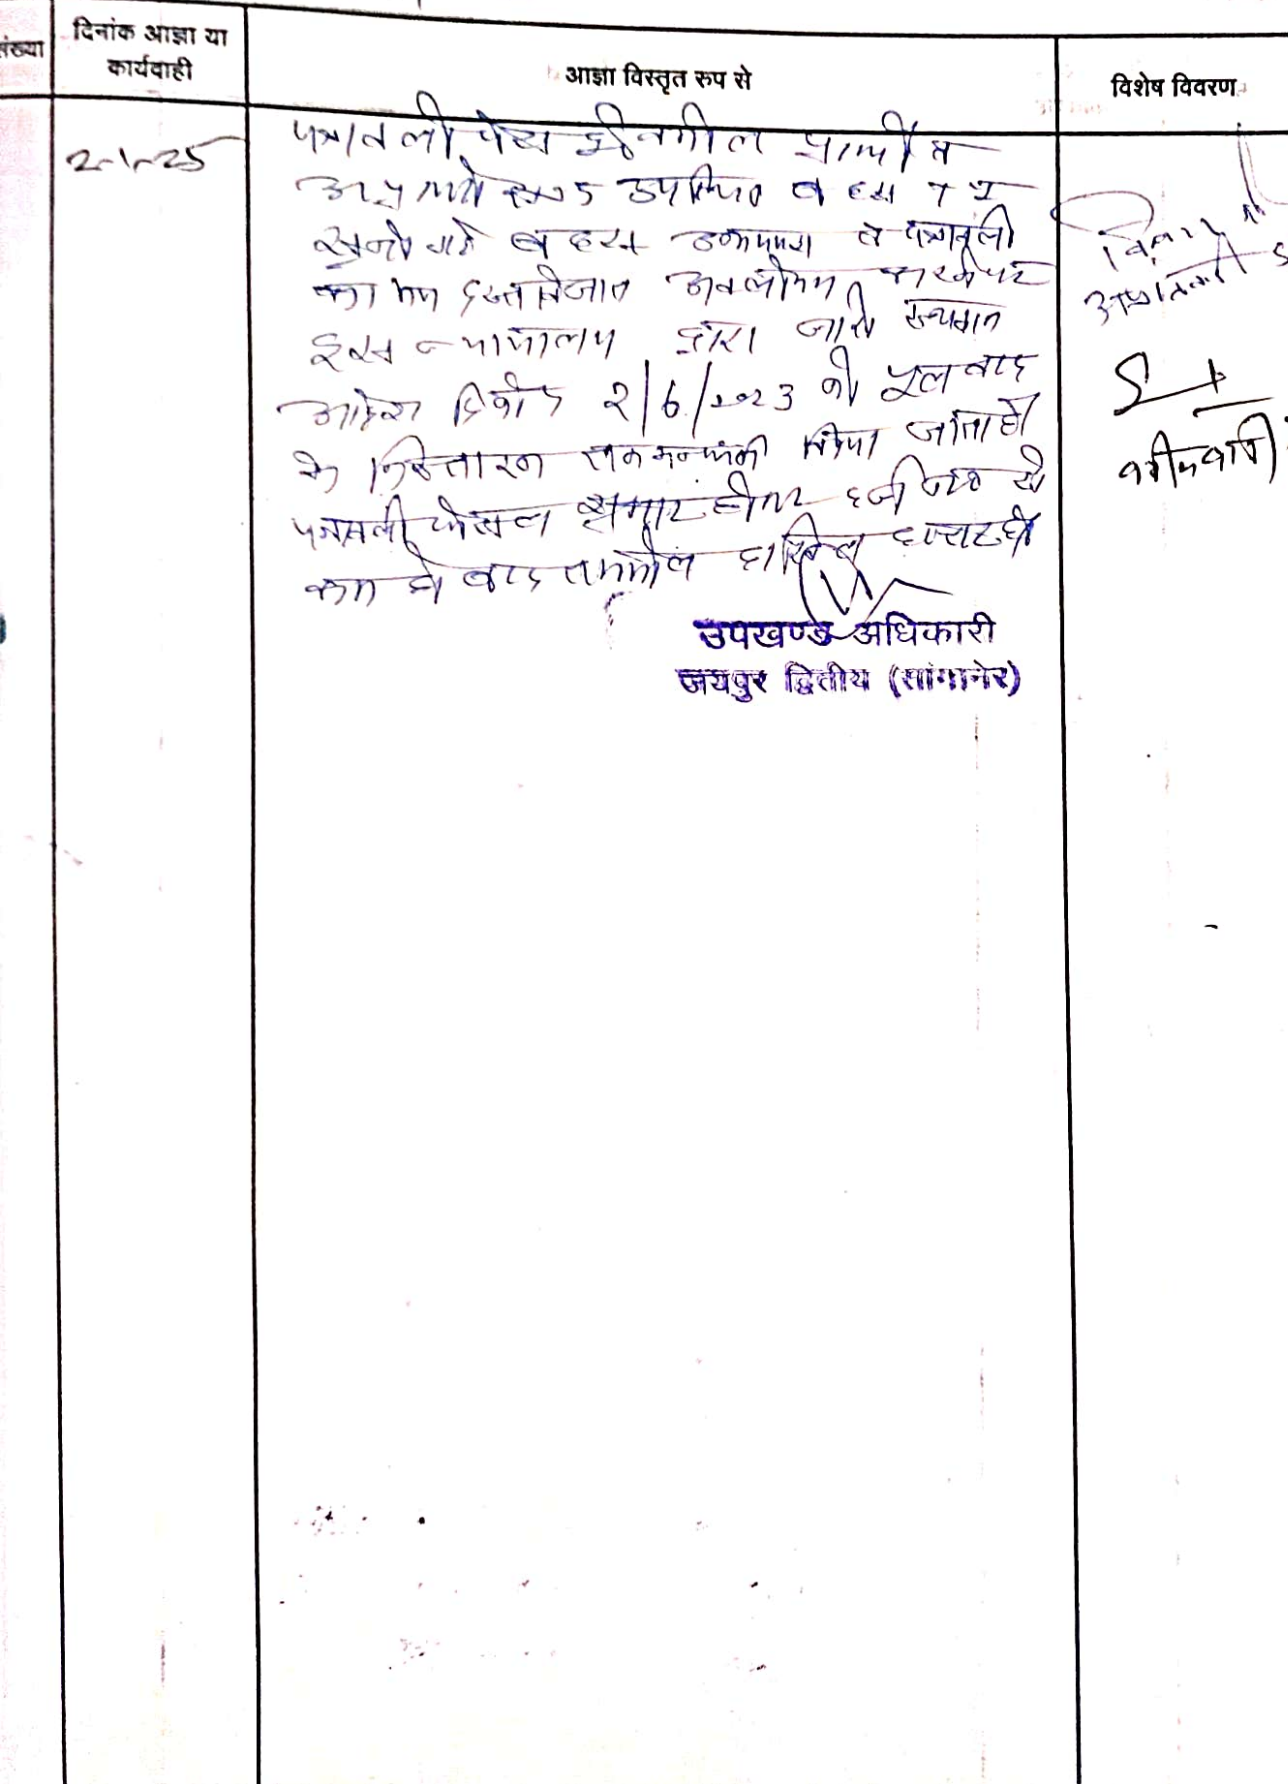 संख्या
दिनांक आज्ञा या
कार्यवाही
आज्ञा विस्तृत रुप से
विशेष विवरण
2-1-25
पत्रावली पेश हुई वकील प्रार्थी व
उपस्थित बहस
सुनी गई बहस उभयपक्ष व पत्रावली
का मय दस्तावेजात अवलोकन करने पर
इस न्यायालय द्वारा जारी स्थगन
आदेश दिनांक 2/6/2023 को मूल वाद
के निस्तारण तक किया जाता है
पत्रावली फैसल शुमार होकर दर्ज नम्बर से
कम हो बाद तकमील दाखिल दफ्तर हो
उपखण्ड अधिकारी
जयपुर द्वितीय (सांगानेर)